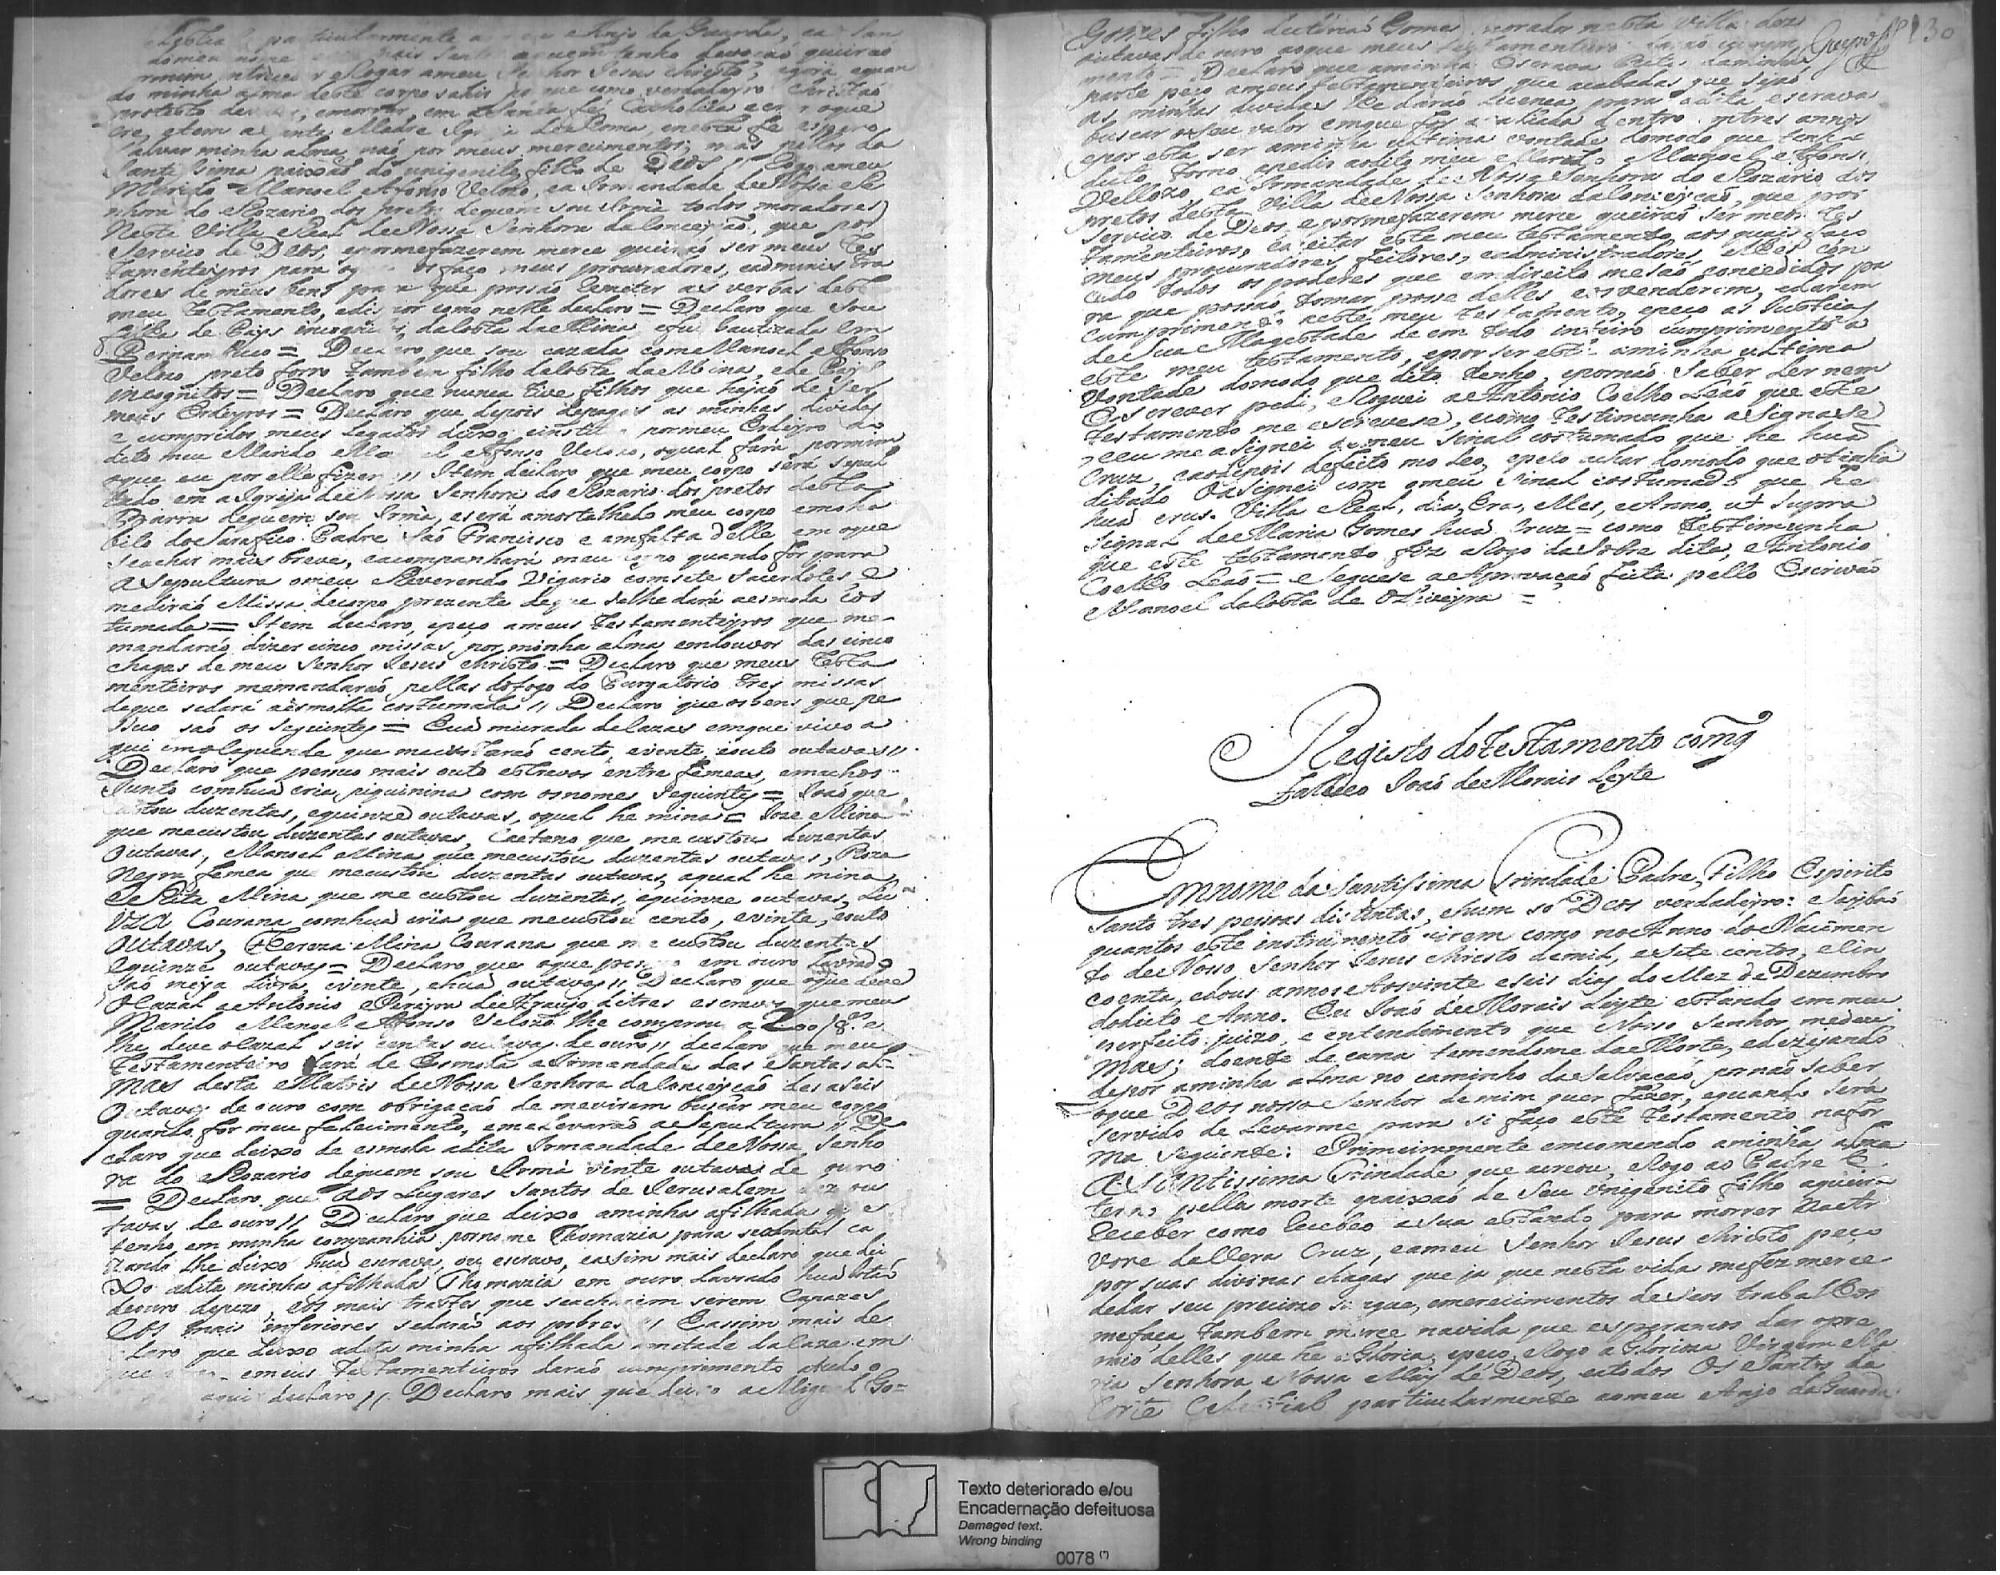 particularmente a Anjo da Guarda, ea San
do meu nome mais Santo aquem tenho devoção queirão
por mim interceder e Rogar ameu Senhor Jesus christo, agora equan
do minha alma deste corpo sahir por que como verdadeyro Christão
protesto de viver, emorrer, em aSanta fé Catholica e crer oque
cre, etem a Santa Madre Igreja de Roma, enesta fé espero
salvar minha alma, não por meus merecimentos, mas pellos da
Santissima paixão do unigenito filho de Deos // Rogo ameu
Marido Manoel Afonso Velozo, ea Irmandade de Nossa Se
nhora do Rozario dos pretos dequem sou Irmã todos moradores
Nesta Villa Real de Nossa Senhora da Conceyção, que por
Serviço de Deos, epor mefazerem merce queirão ser meus tes
tamenteyros para o que os faço meus procuradores, eadministra
dores de meus bens para que possão Remeter as verbas deste
meu testamento, edispor como neste declaro = Declaro que sou
filha de Pays incognitos, da Costa da Mina, efui bautizada em
Pernambuco = Declaro que sou cazada com Manoel Afonso
Velozo preto forro tambem filho da Costa da Mina, ede Pays
incognitos = Declaro que nunca tive filhos que hajão de Ser
meus Erdeyros = Declaro que depois depagas as minhas dividas
e cumpridos meus Legados deixo einstituo por meu Erdeyro ao
dito meu Marido Manoel Afonso Velozo, oqual fará por mim
oque eu por elle fizer // Item declaro que meu corpo será sepul
tado em a Igreja de Nossa Senhora do Rozario dos pretos desta
Bairra dequem sou Irmã, eserá amortalhado meu corpo emoha
bito do Sarafico Padre São Francisco e emfalta delle em oque
seachar mais breve, eacompanhará meu corpo quando for para
a Sepultura omeu Reverendo Vigario comsete Sacerdotes, e
medirão Missa decorpo prezente deque selhe dará aesmola cos
tumada = Item declaro, epeço ameus testamenteyros que me
mandarão dizer cinco missas, por minha alma emlouvor das cinco
chagas de meu Senhor Jesus christo = Declaro que meus testa
menteiros memandarão pellas do fogo do Purgatorio tres missas
deque sedará aesmolla costumada // Declaro que osbens que po
suo são os seguintes = Huã murada decazas emque vivo a
qui emolaquende que mecustarão cento, evinte, eouto outavas //
Declaro que pessuo mais outo escravos entre femeas, emachos
Junto comhuã cria piquinina com osnomes Seguintes = João que
custou duzentas, equinze outavas, oqual he mina = Joze Mina
que mecustou duzentas outavas, Caetano que me custou duzentas
Outavas, Manoel Mina que mecustou duzentas outavas, Roza
Negra femea que mecustou duzentas outavas, aqual he mina
e Rita Mina que me custou duzentas, equinze outavas, Lu
IZA Courana comhuã cria que mecustou cento, evinte, eouto
Outavas, Thereza Mina Courana que me custou duzentas
equinze outavas = Declaro que oque pessuo em ouro lavrado
São meya Livra, evinte, ehuã outavas // Declaro que oque deve
OCazal a Antonio Pereyra de Araujo detres escravos que meu
Marido Manoel Afonso Velozo lhe comprou a 200/8.as e
lhe deve oCazal seis centas outavas de ouro // declaro que meu
testamenteiro dará de Esmola a Irmandade das Santas al=
mas desta Matris de Nossa Senhora da Conceyção dezaseis
Outavas de ouro com obrigação de mevirem buscar meu corpo
quando for meu falecimento, emeLevarão aSepultura // De
claro que deixo de esmola adita Irmandade de Nossa Senho
ra do Rozario dequem sou Irmã vinte outavas de ouro
= Declaro que aos Lugares Santos de Jerusalem dez ou
tavas de ouro // Declaro que deixo aminha afilhada que
tenho em minha companhia por nome Thomazia para seademitas ca
zando lhe deixo huã escrava, ou escravo, easim mais declaro que dei
Xo adita minha afilhada Thomazia em ouro Lavrado huã
deouro depezo, eos mais trastes que seacharem serem capazes
eos mais inferiores sedarão aos pobres // Eassim mais de
claro que deixo adita minha afilhada ametade da Caza em
que vivo emeus testamenteiros darão cumprimento atudo o
aqui declaro // Declaro mais que deixo a Miguel Go=
Gomes filho de Gomes morador nesta Villa dez
outavas de ouro aoque meus testamenteiros darão cumpri
mento = Declaro que aminha Escrava Rita daminha
parte peço ameus testamenteiros que acabadas que sejão
as minhas dividas Lhe darão Licença para adita escrava
buscar oseu valor emque for avaliada dentro em tres annos
epor esta ser aminha ultima vontade domodo que tenho
dito torno apedir aodito meu Marido Manoel Afonso
Vellozo, ea Irmandade de Nossa Senhora do Rozario dos
pretos desta Villa de Nossa Senhora da Conceyção, que por
serviço de Deos, epor mefazerem merce queirão ser meus tes
tamenteiros, eaceitar este meu testamento aos quais faço
meus procuradores, feitores, eadministradores, e lhes con
cedo todos os poderes que emdireito mesão concedidos pa
ra que possão tomar posse delles, eosvenderem, edarem
cumprimento aeste meu testamento, epeço as Justiças
de Sua Magestade de em todo inteiro cumprimento a
este meu testamento, epor ser esta aminha ultima
Vontade domodo que dito tenho, epornão Saber Ler nem
Escrever pedi, eRoguei a Antonio Coelho Leão que este
testamento me escrevese, ecomo testimunha aSignase
eeu me asignei de meu sinal costumado que he huã
Cruz, edepois defeito mo Leo, epelo achar domodo que otinha
ditado oasignei com omeu sinal costumado que he
huã crus. Villa Real, dia, Era, Mes, e Anno, ut supra
Signal de Maria Gomes huã Cruz = como testimunha
que este testamento fiz aRogo da Sobre dita, Antonio
Coelho Leão = eSeguese a Aprovação feita pello Escrivão
Manoel da Costa de Oliveyra =
130
Registo do testamento comq
Faleceo João de Morais Leyte
Em nome da Santissima Trindade Padre, Filho Espirito
Santo tres pessoas distintas, ehum só Deos verdadeyro: Saybão
quantos este instrumento virem como no Anno do Nacimen
to de Nosso Senhor Jesus Christo de mil, esete centos, ecin
coenta, edous annos Aosvinte eseis dias do Mez de Dezembro
dodicto Anno. Eu João de Morais Leyte estando em meu
perfeito juizo, e entendimento que Nosso Senhor medeu
Mas; doente de cama temendome da Morte, edezejando
depor aminha alma no caminho da Salvação, pornão saber
oque Deos nosso Senhor de mim quer fazer, equando será
servido de Levarme para si faço este testamento na for
ma seguinte: Primeiramente emcomendo aminha alma
a Santissima Trindade que acreou, eRogo ao Padre E
terno pella morte epaixão de Seu Unigenito filho aqueira
Receber como Recebeo aSua estando para morrer na Ar
vore da Vera Cruz, eameu Senhor Jesus christo peço
por suas divinas chagas que ja que nesta vida mefez merce
dedar seu preciozo sangue, emerecimentos de seos trabalhos
mefaça tambem merce navida que esperamos dar opre
mio delles que he aGloria, epeço, eRogo a Glorioza Virgem Ma
ria Senhora Nossa May de Deos, eatodos Os Santos da
Corte Celestial particularmente aomeu Anjo da Guarda
Texto deteriorado e/ou
Encadernação defeituosa
Damaged text.
Wrong binding
0078 (*)